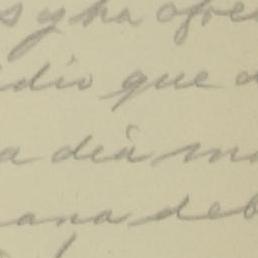 s y ha ofre
idio que a
a dia ma
ana deb